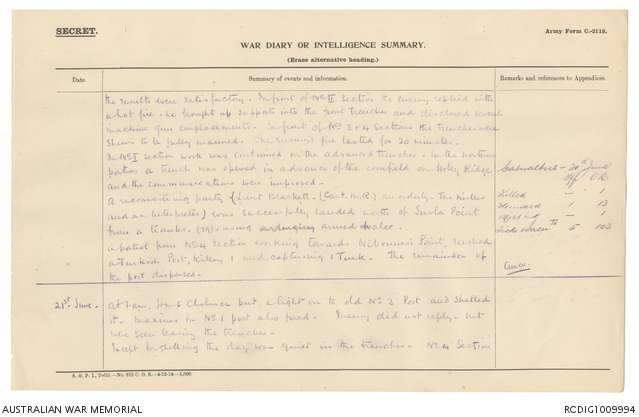 SECRET.
Army Form C.-2118.
WAR DIARY OR INTELLIGENCE SUMMARY.
(Erase alternative heading.)
Date.
Summary of events and information.
Remarks and references to Appendices.
the results were satisfactory. In front of No II Section the enemy replied with
what fire - he brought up supports into the front trenches and disclosed several
machine gun emplacements. In front of Nos 3 & 4 Sections the trenches were
shewn to be fully manned. The enemy's fire lasted for 20 minutes.
In No I Section work was continued on the advanced trenches. In the northern
portion a trench was opened in advance of the cornfield on Holly Ridge
and the communications were improved.
A reconnoitring party (Lieut Blackett. (Cant. M.R.) an orderly. Two
and an Interpreter) was successfully landed north of Suvla Point
from a trawler.
A patrol from No 4 Section working towards Nibrunesi Point, rushed
a Turkish Post, killing 1 and capturing 1 Turk. The remainder of
the post dispersed.
Casualties - 20th June
Off O.R.
Killed - 1
Wounded 1 13
Missing - 1
5 102
21st June.
At 2 am. H.M.S Chelmer put a light on to old No 3 Post and shelled
it. Maxims in No 1 post also fired. Enemy did not reply - but
were seen leaving the trenches.
Except for shelling the day was quiet in the trenches. No 4 Section
AUSTRALIAN WAR MEMORIAL
RCDIG1009994